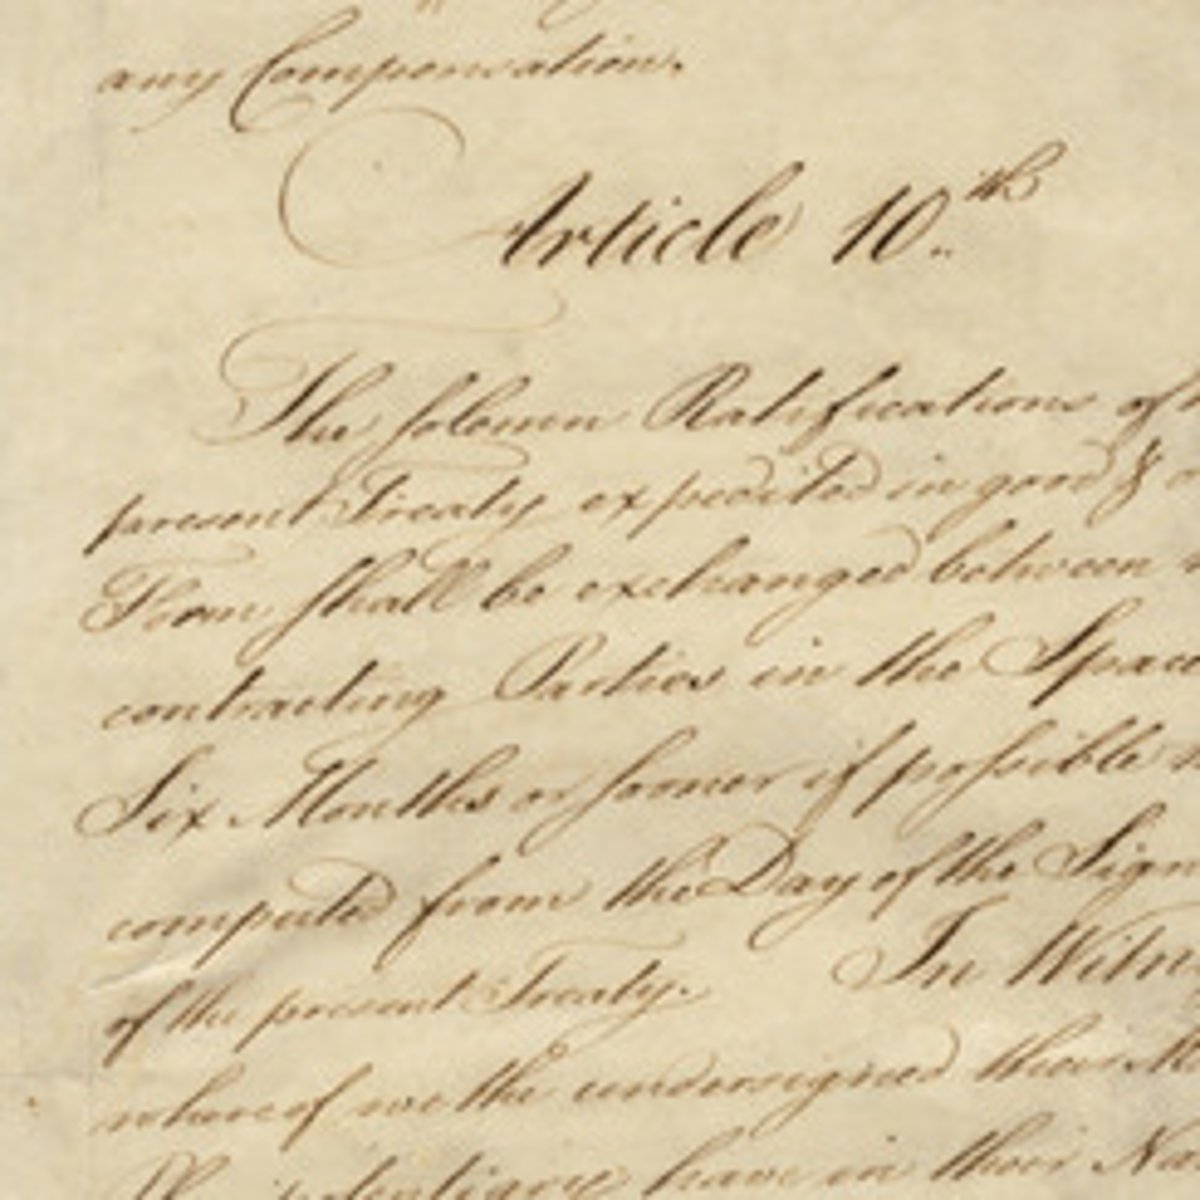 any Compensation.
Article 10.th
The solemn Ratifications of
present Treaty expedited in good &
Form shall be exchanged between
contracting Parties in the Space
Six Months or sooner if possible
computed from the Day of the Sign
of the present Treaty. In Witn
whereof we the undersigned their
have in their